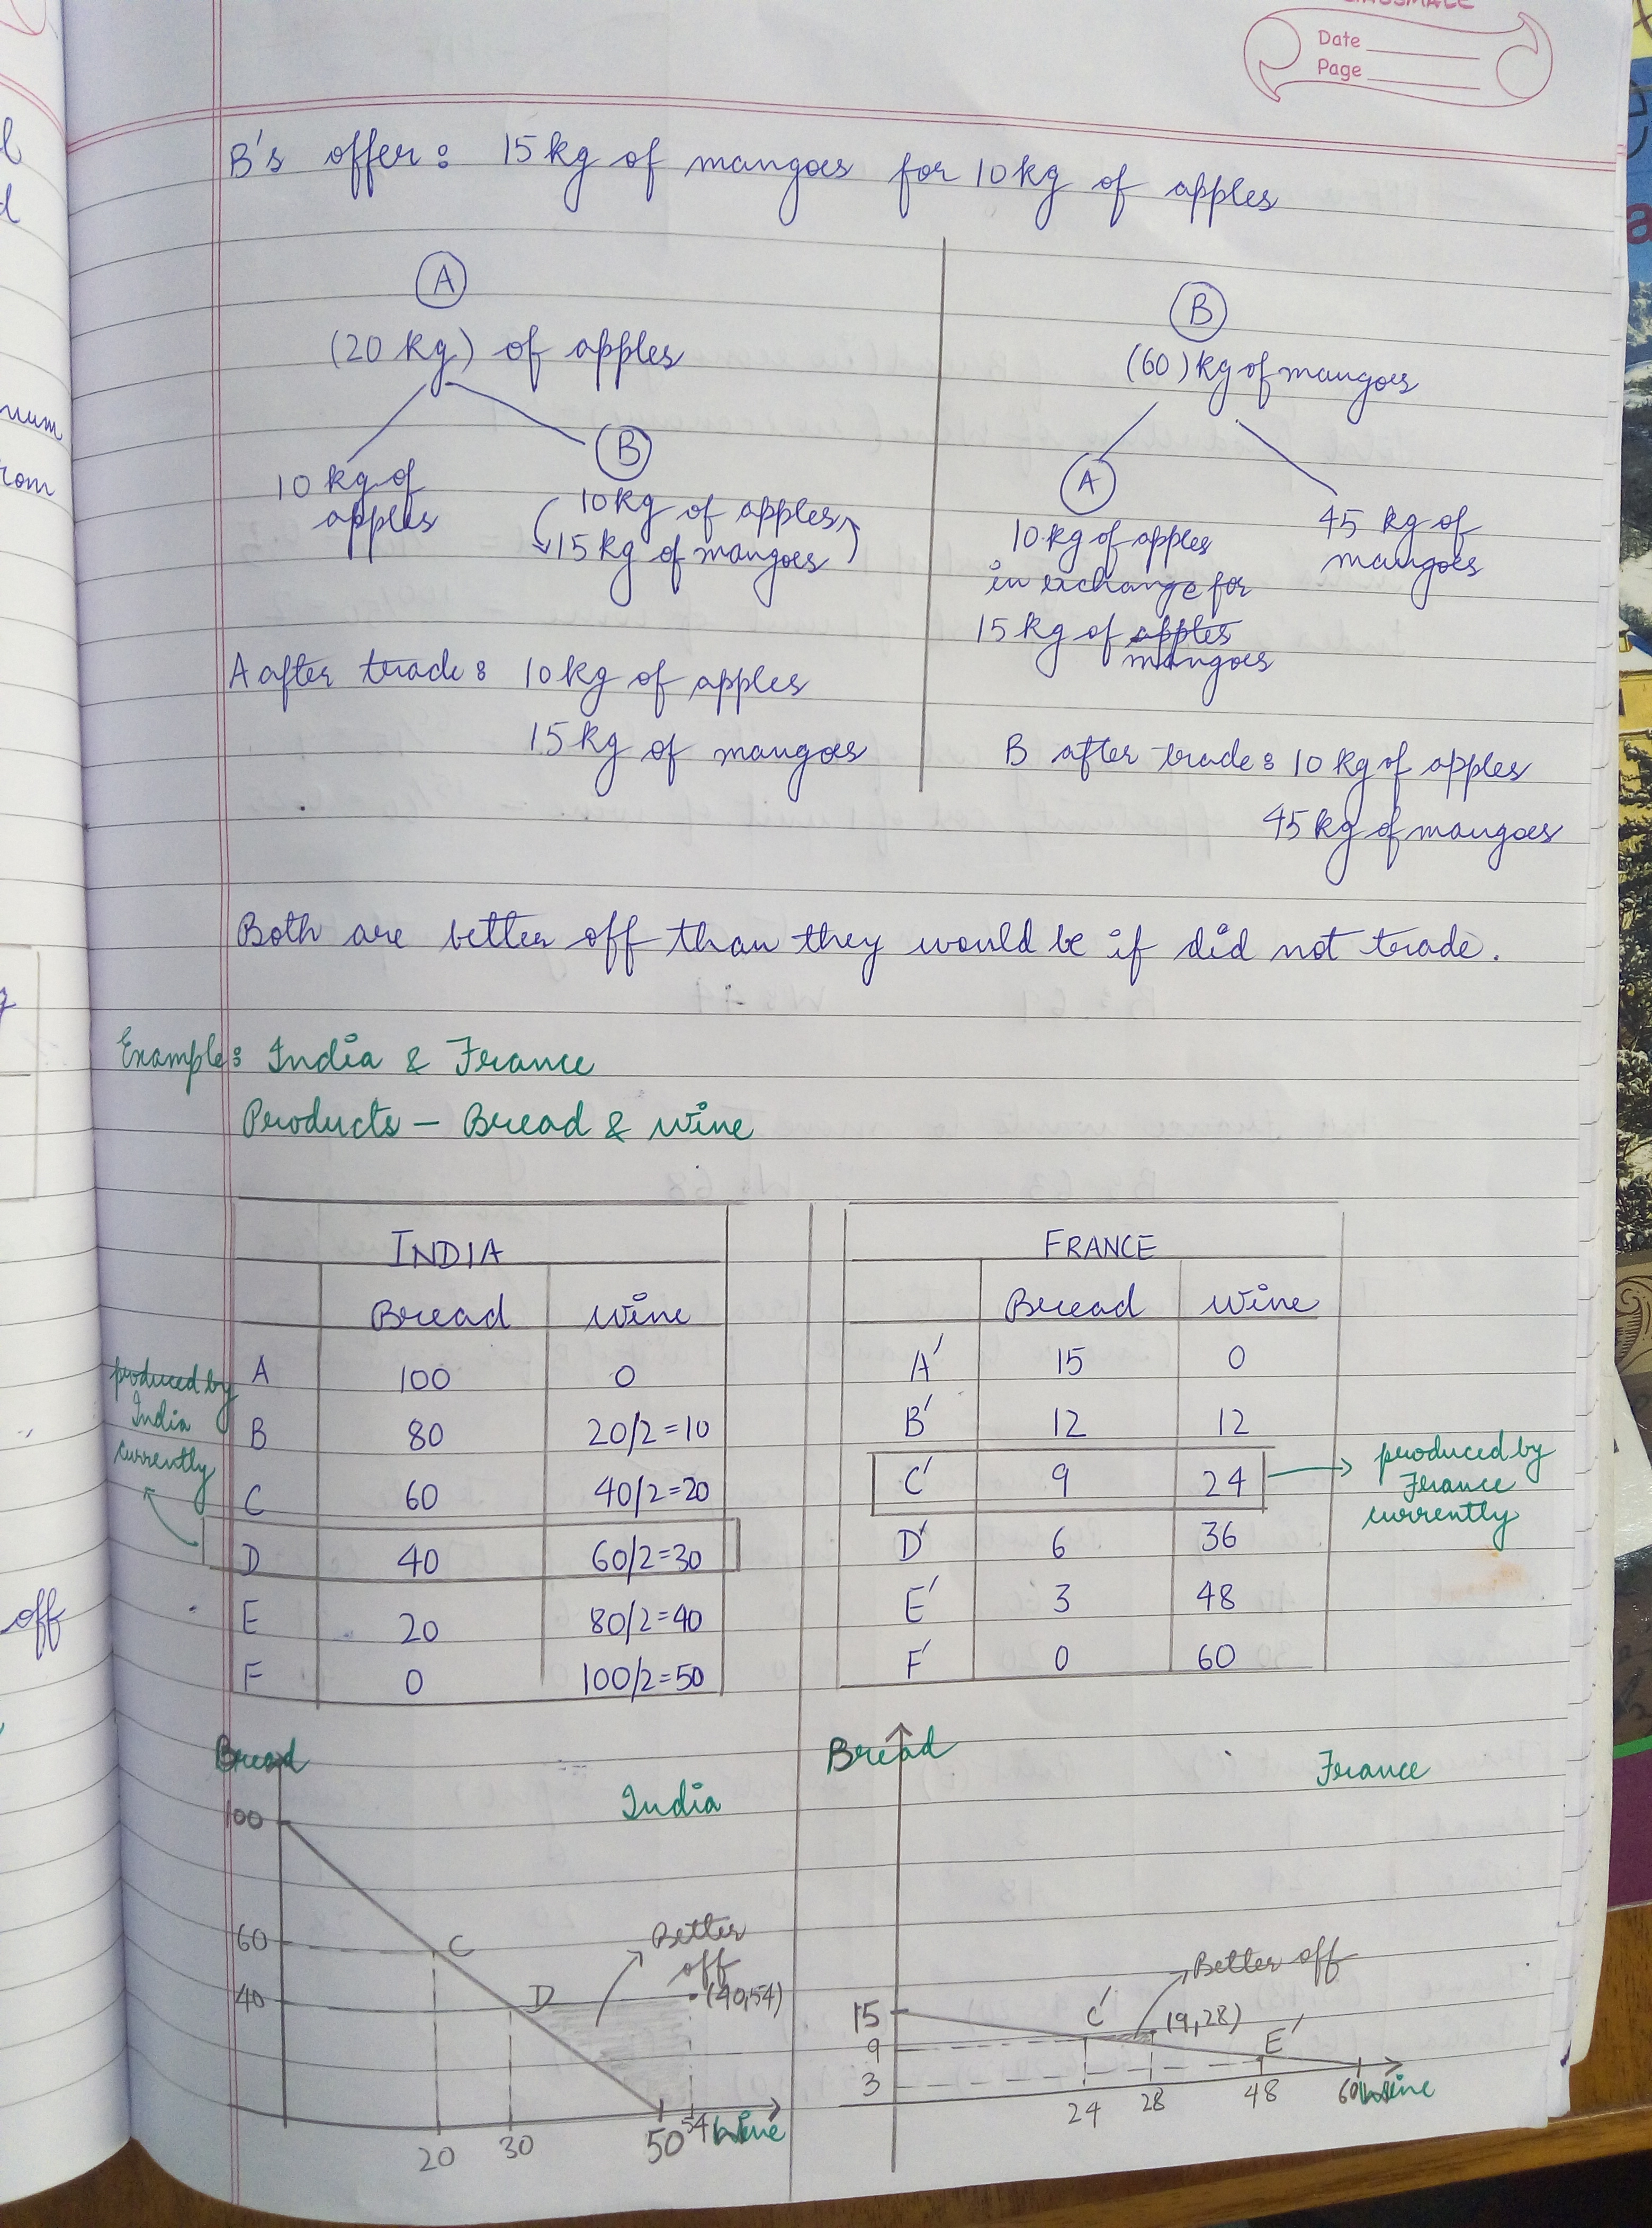 Date
Page
B's offer: 15 kg of mangoes for 10 kg of apples
A
(20 kg) of apples
10 kg of
apples
B
10 kg of apples
15 kg of mangoes
A after trade: 10 kg of apples
15 kg of mangoes
B
(60) kg of mangoes
A
10 kg of apples
in exchange for
15 kg of apples
mangoes
45 kg of
mangoes
B after trade: 10 kg of apples
45 kg of mangoes
Both are better off than they would be if did not trade.
Example: India & France
Products - Bread & Wine
INDIA
Bread Wine
A 100 0
B 80 20/2=10
C 60 40/2=20
D 40 60/2=30
E 20 80/2=40
F 0 100/2=50
produced by
India
currently
FRANCE
Bread Wine
A' 15 0
B' 12 12
C' 9 24
D' 6 36
E' 3 48
F' 0 60
produced by
France
currently
Bread
India
100
60 C
Better
off
40 D (40,54)
20 30 50 54 Wine
Bread
France
Better off
15 C' (9,28)
9 E'
3
24 28 48 60 Wine
num
rom
off